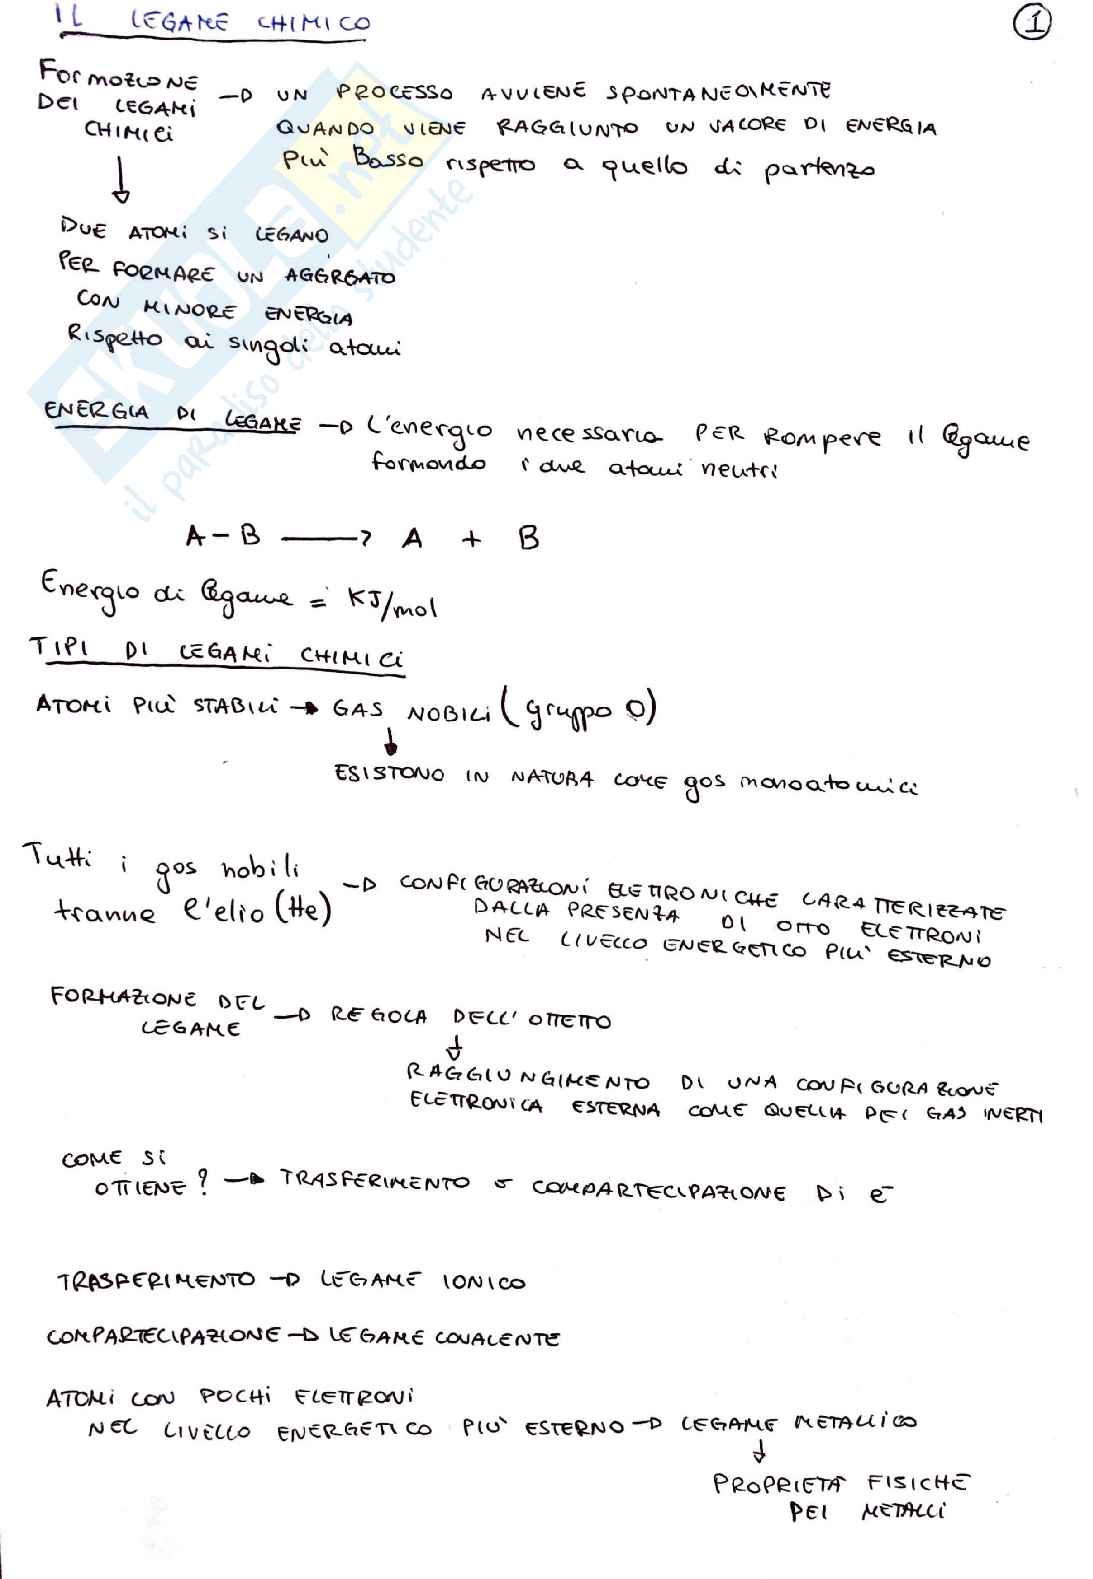 IL LEGAME CHIMICO
1
Formazione
DEI LEGAMI
CHIMICI
→ UN PROCESSO AVVIENE SPONTANEAMENTE
QUANDO VIENE RAGGIUNTO UN VALORE DI ENERGIA
PIÙ Basso rispetto a quello di partenza
↓
DUE ATOMI SI LEGANO
PER FORMARE UN AGGREGATO
CON MINORE ENERGIA
Rispetto ai singoli atomi
SKUOLA.net
il paradiso dello studente
ENERGIA DI LEGAME → L'energia necessaria PER Rompere il legame
formando i due atomi neutri
A - B → A + B
Energia di legame = KJ/mol
TIPI DI LEGAMI CHIMICI
ATOMI PIÙ STABILI → GAS NOBILI (gruppo 0)
↓
ESISTONO IN NATURA COME gas monoatomici
Tutti i gas nobili
tranne l'elio (He)
→ CONFIGURAZIONI ELETTRONICHE CARATTERIZZATE
DALLA PRESENZA DI OTTO ELETTRONI
NEL LIVELLO ENERGETICO PIÙ ESTERNO
FORMAZIONE DEL
LEGAME
→ REGOLA DELL'OTTETTO
↓
RAGGIUNGIMENTO DI UNA CONFIGURAZIONE
ELETTRONICA ESTERNA COME QUELLA DEI GAS INERTI
COME SI
OTTIENE? → TRASFERIMENTO O COMPARTECIPAZIONE DI e⁻
TRASFERIMENTO → LEGAME IONICO
COMPARTECIPAZIONE → LEGAME COVALENTE
ATOMI CON POCHI ELETTRONI
NEL LIVELLO ENERGETICO PIÙ ESTERNO → LEGAME METALLICO
↓
PROPRIETÀ FISICHE
DEI METALLI